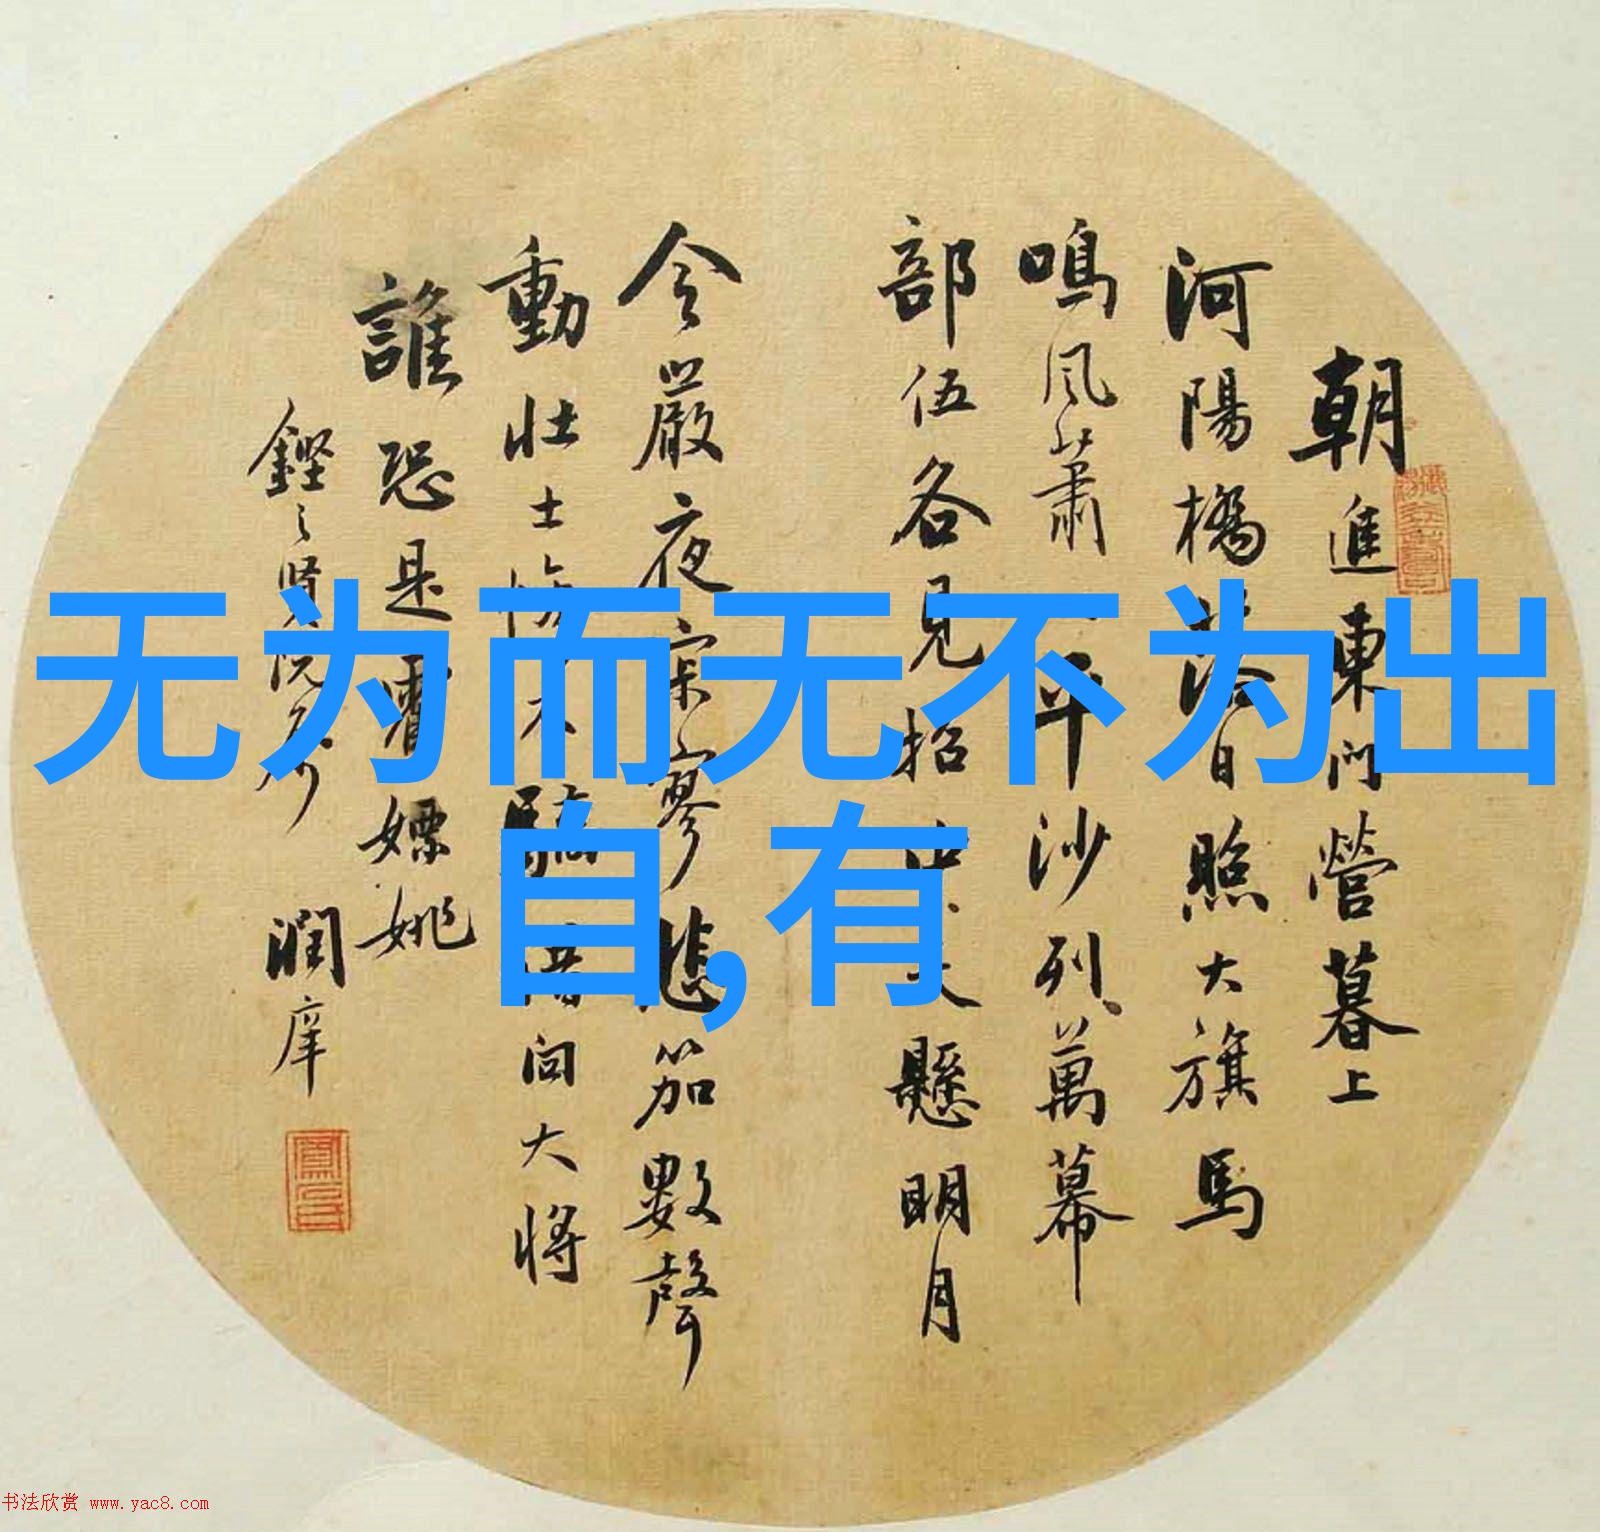 无为而无不为出
自,有
朝進東門營暮上
河陽橋落日照大旗馬
鳴風蕭平沙列萬幕
部伍各見招中天懸明月
令嚴夜寂寥悲笳數聲
動壯士慘不驕借問大將
誰恐是霍嫖姚
潤庠
书法欣赏 www.yac8.com